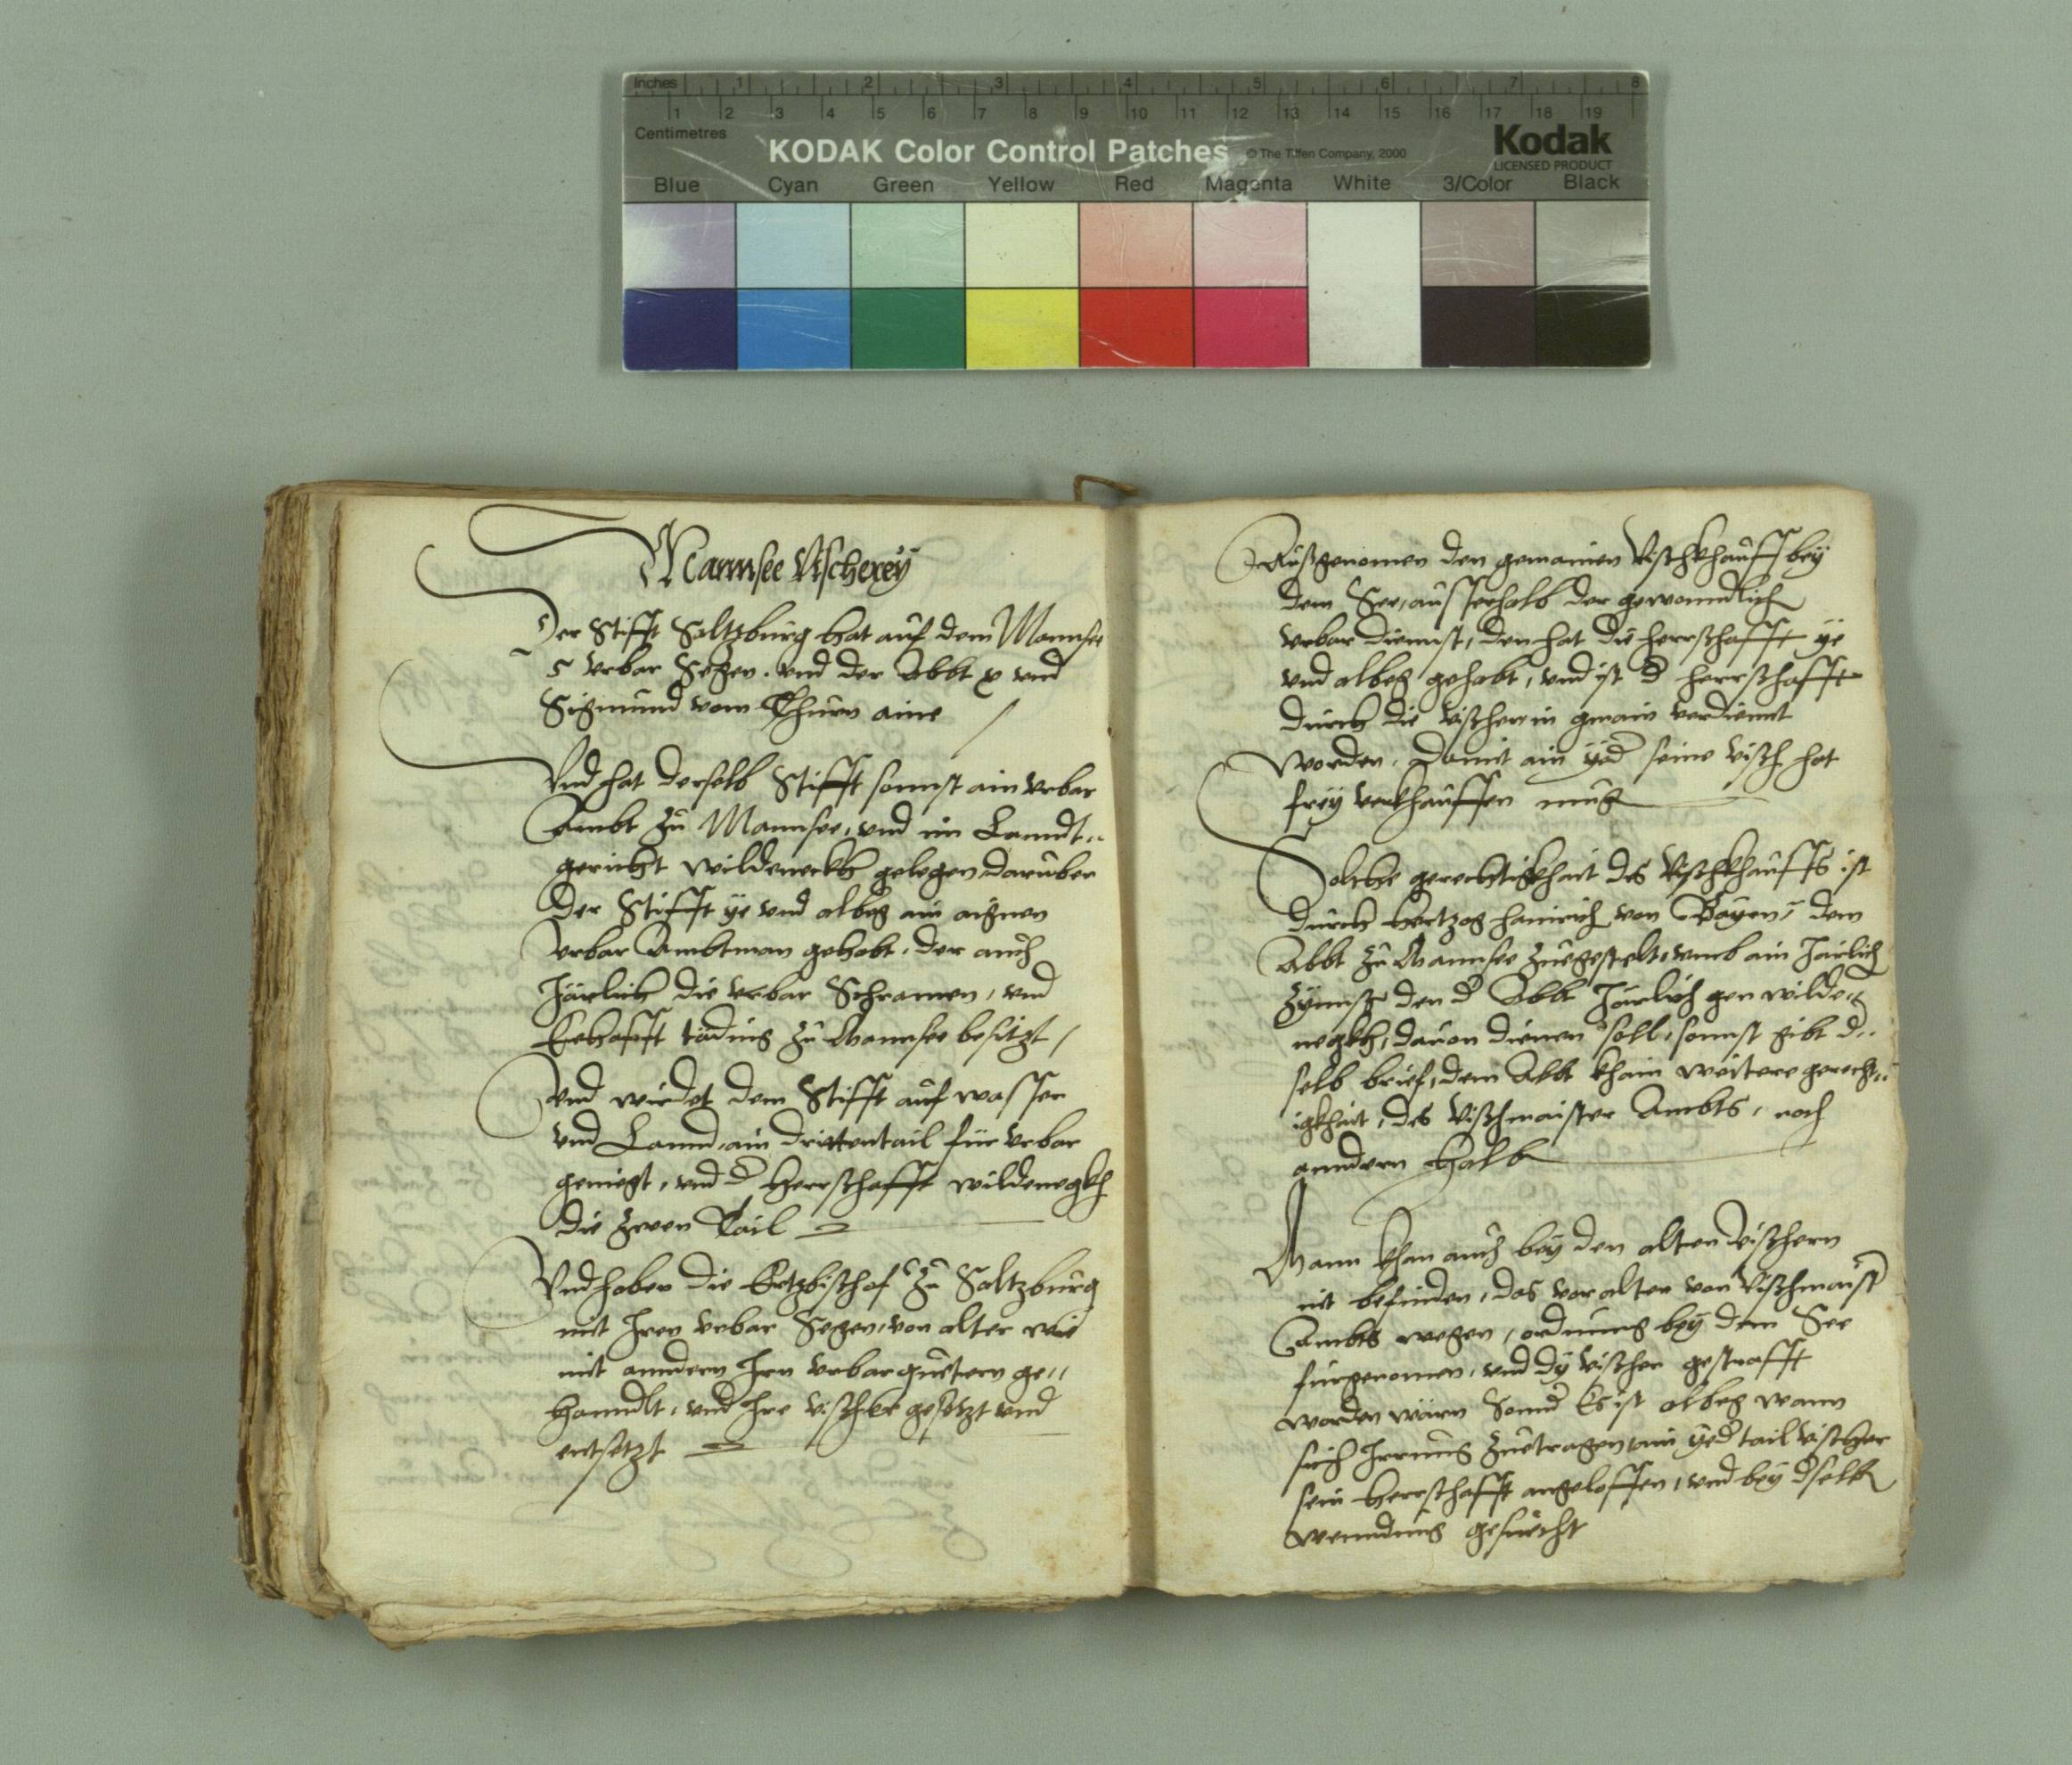 Inches 1 2 3 4 5 6 7 8
1 2 3 4 5 6 7 8 9 10 11 12 13 14 15 16 17 18 19
Centimetres
KODAK Color Control Patches © The Tiffen Company, 2000 Kodak
LICENSED PRODUCT
Blue Cyan Green Yellow Red Magenta White 3/Color Black
Mannsee Vischerey
Der Stifft Saltzburg hat auf dem Mannsee
5 vrbar Segen. vnd der Abbt x vnd
Sigmund vom Thurn aine /
Vnd hat derselb Stifft sonnst ain vrbar
Ambt zu Mannsee, vnd im Lanndt„
gericht wildeneckh gelegen, darüber
der Stifft ye vnd albeg ain aignen
vrbar Ambtman gehabt, der auch
Järlich die vrbar Schrannen, vnd
Eehafft täding zu Mannsee besitzt /
Vnd wirdet dem Stifft auf wasser
vnd Lannd, ain drittentail für vrbar
geniegt, vnd d herrschafft wildenegkh
die zwen Tail
Vnd haben die Ertzbischof zu Saltzburg
mit Iren vrbar Segen, von alter wie
mit anndern Irn vrbarguetern ge„
hanndlt, vnd Ire vischer gesetzt vnd
entsetzt
Außgenomen den gemainen Vischkhauff bey
dem See, ausserhalb der gewonndlich
vrbar diennst, den hat die herrschafft ye
vnd albeg gehabt, vnd ist d herrschafft
durch die vischer in gmain verdiennt
worden. Damit ain yed seine visch hat
frey verkhauffen mug
Solche gerechtigkhait des Vischkhauffs ist
durch hertzog hainrich von Bayen, dem
Abbt zu Mannsee zuegestelt, vmb ain Järlich
Zynnst den d Abbt Järlich gen wilde„
negkh, dauon dienen soll, sonnst gibt d„
selb brief, dem Abbt khain weitere gerecht„
igkhait, des vischmaister Ambts, noch
anndern halb
Mann khan auch bey den alten vischern
nit befinden, das vor alter von Vischmaist
Ambts wegen, ordnung bey dem See
fürgenomen, vnd dy vischer gestrafft
worden wärn Sonnd Es ist albeg wann
sich Irrung zuetragen, ain yed tail vischer
sein herrschafft angeloffen, vnd bey dselb
wenndung gesuecht